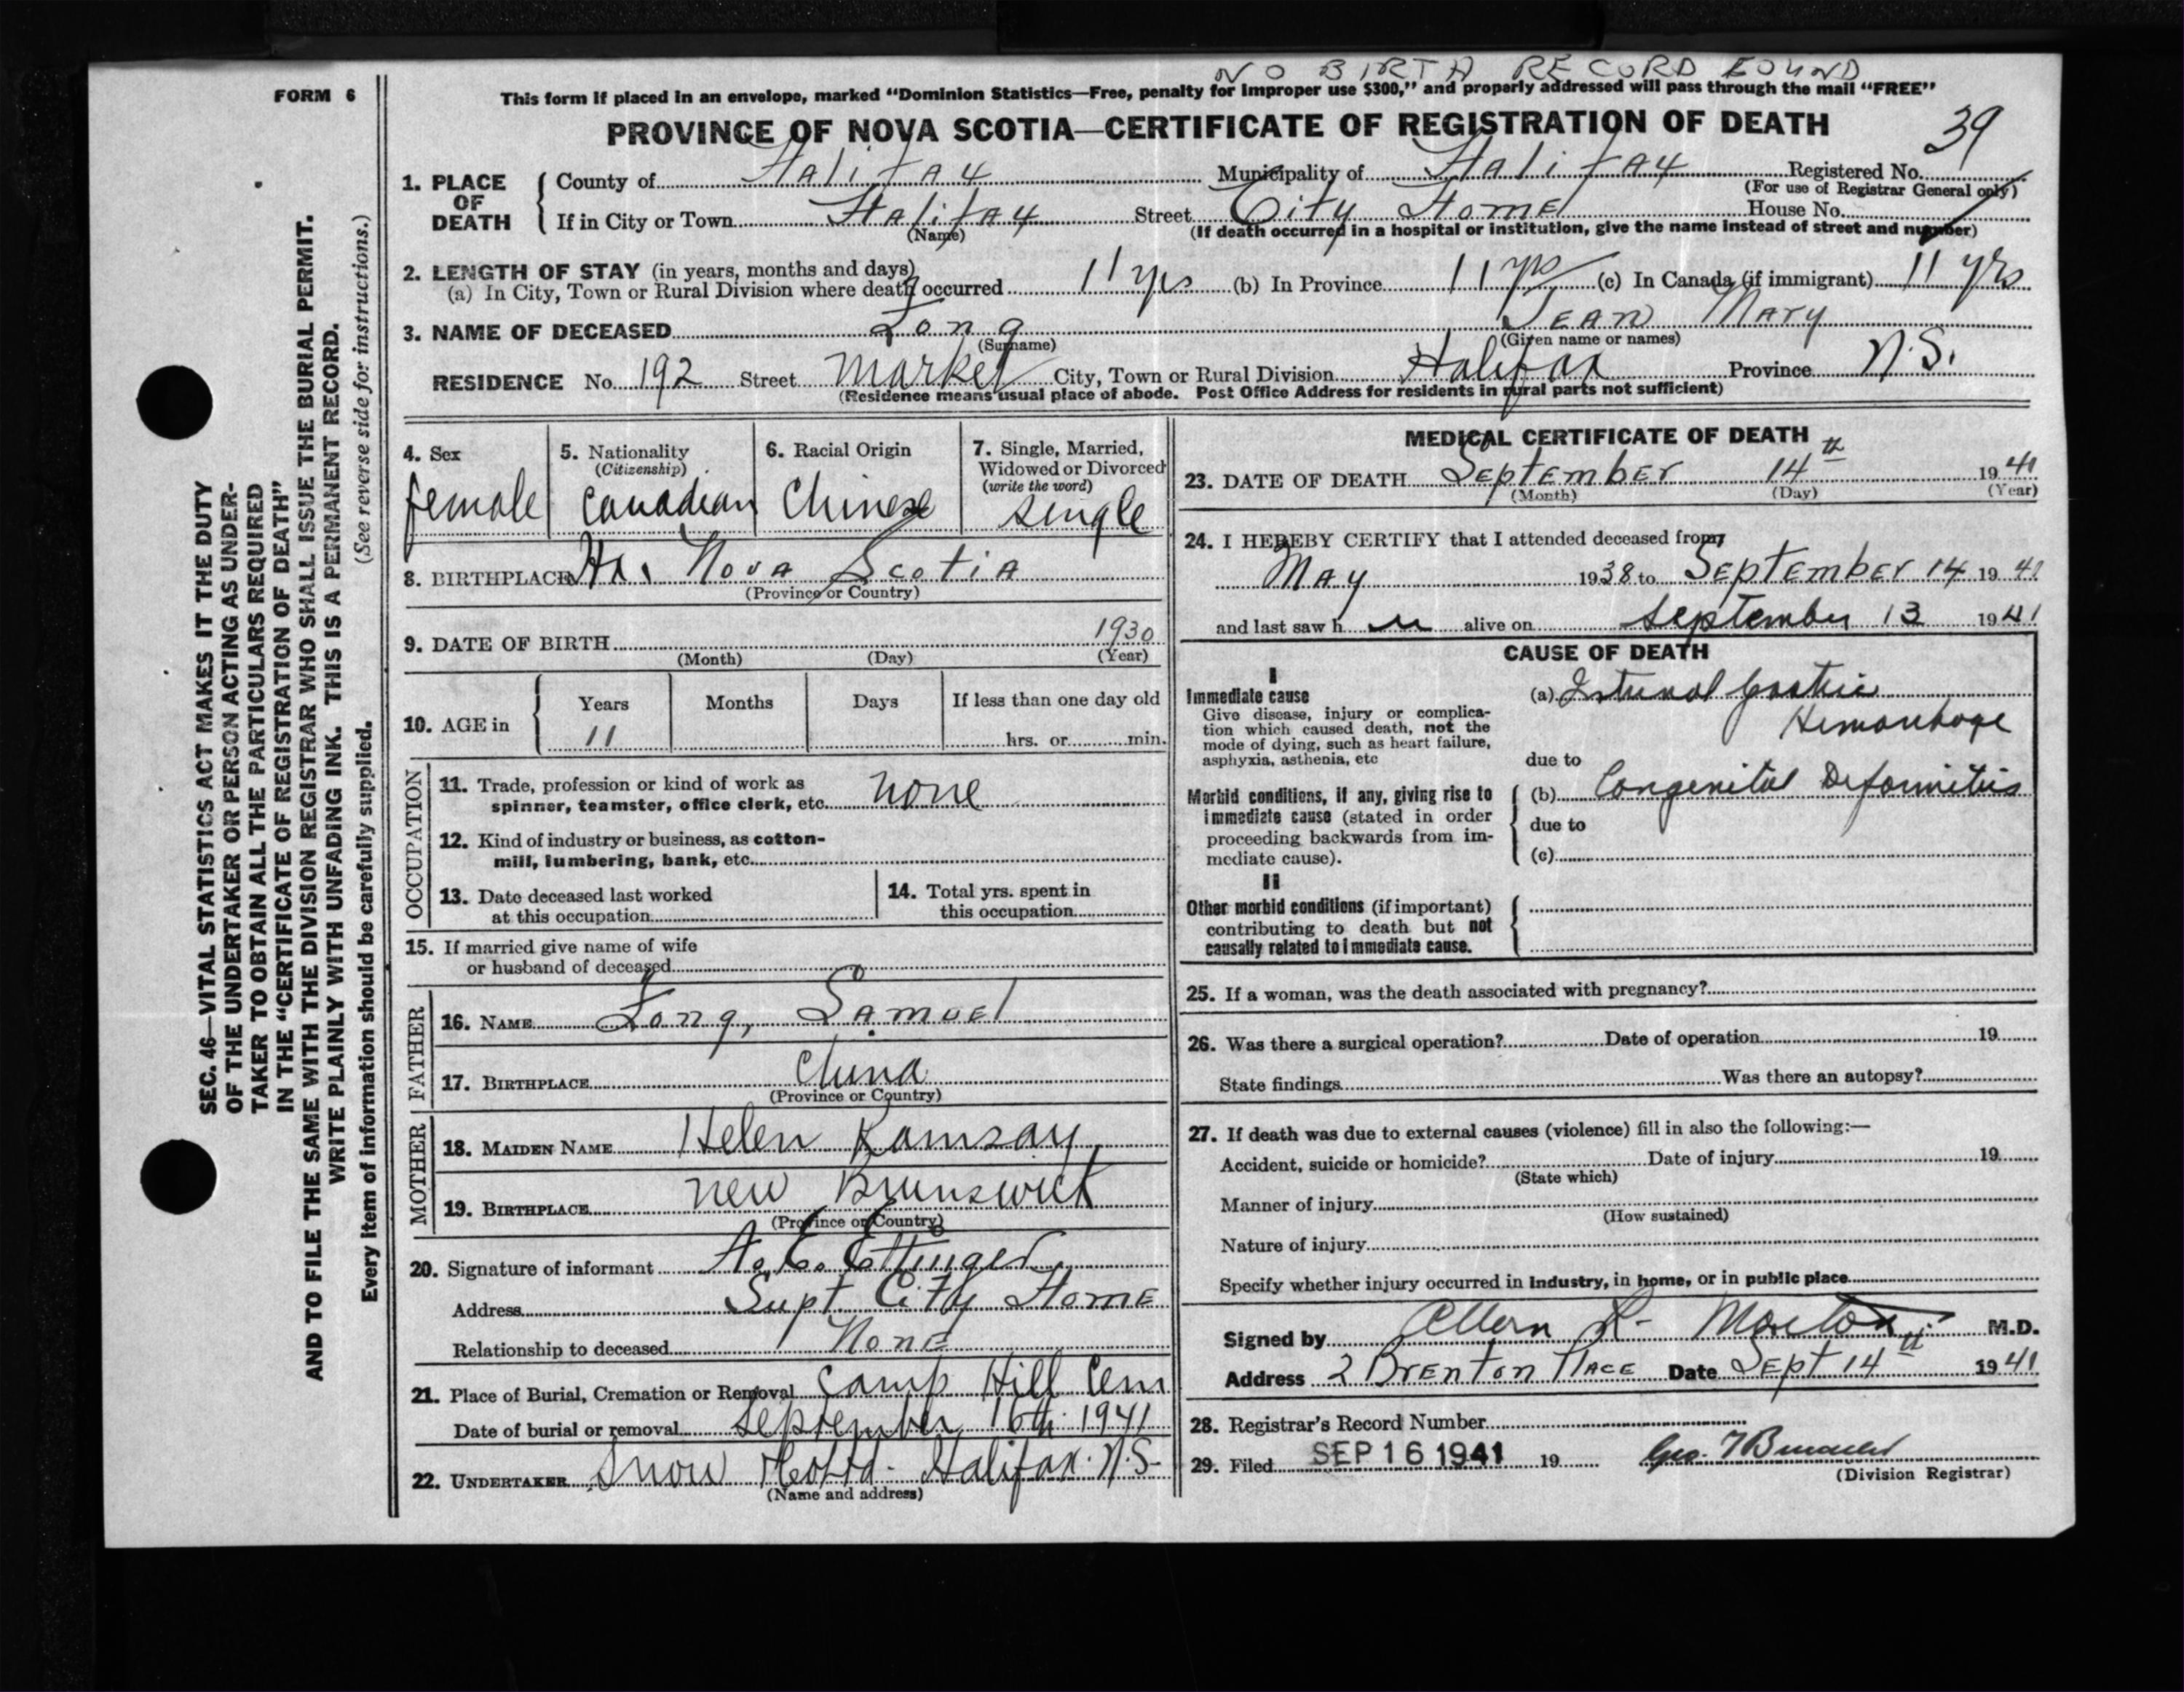 NO BIRTH RECORD FOUND
FORM 6
This form if placed in an envelope, marked “Dominion Statistics—Free, penalty for improper use $300,” and properly addressed will pass through the mail “FREE”
PROVINCE OF NOVA SCOTIA—CERTIFICATE OF REGISTRATION OF DEATH
39
1. PLACE OF DEATH
County of Halifax Municipality of Halifax Registered No.
(For use of Registrar General only)
If in City or Town Halifax Street City Home House No.
(Name) (If death occurred in a hospital or institution, give the name instead of street and number)
2. LENGTH OF STAY (in years, months and days)
(a) In City, Town or Rural Division where death occurred 11 yrs (b) In Province 11 yrs (c) In Canada (if immigrant) 11 yrs
3. NAME OF DECEASED Long Jean Mary
(Surname) (Given name or names)
RESIDENCE No. 192 Street Market City, Town or Rural Division Halifax Province N.S.
(Residence means usual place of abode. Post Office Address for residents in rural parts not sufficient)
4. Sex
female
5. Nationality
(Citizenship)
Canadian
6. Racial Origin
Chinese
7. Single, Married,
Widowed or Divorced
(write the word)
single
8. BIRTHPLACE Hx. Nova Scotia
(Province or Country)
9. DATE OF BIRTH 1930
(Month) (Day) (Year)
10. AGE in
Years Months Days If less than one day old
11 hrs. or min.
OCCUPATION
11. Trade, profession or kind of work as
spinner, teamster, office clerk, etc. none
12. Kind of industry or business, as cotton-
mill, lumbering, bank, etc.
13. Date deceased last worked
at this occupation
14. Total yrs. spent in
this occupation
15. If married give name of wife
or husband of deceased
FATHER
16. NAME Long, Samuel
17. BIRTHPLACE China
(Province or Country)
MOTHER
18. MAIDEN NAME Helen Ramsay
19. BIRTHPLACE New Brunswick
(Province or Country)
20. Signature of informant A. C. Ettinger
Address Supt City Home
Relationship to deceased None
21. Place of Burial, Cremation or Removal Camp Hill Cem
Date of burial or removal September 16th 1941
22. UNDERTAKER Snow & Co Ltd. Halifax. N.S.
(Name and address)
MEDICAL CERTIFICATE OF DEATH
23. DATE OF DEATH September 14th 1941
(Month) (Day) (Year)
24. I HEREBY CERTIFY that I attended deceased from
May 1938 to September 14 1941
and last saw h er alive on September 13 1941
CAUSE OF DEATH
I
Immediate cause
Give disease, injury or complica-
tion which caused death, not the
mode of dying, such as heart failure,
asphyxia, asthenia, etc
(a) Internal Gastric
Hemorrhage
due to
Morbid conditions, if any, giving rise to
immediate cause (stated in order
proceeding backwards from im-
mediate cause).
(b) Congenital Deformities
due to
(c)
II
Other morbid conditions (if important)
contributing to death but not
causally related to immediate cause.
25. If a woman, was the death associated with pregnancy?
26. Was there a surgical operation? Date of operation 19
State findings Was there an autopsy?
27. If death was due to external causes (violence) fill in also the following:—
Accident, suicide or homicide? Date of injury 19
(State which)
Manner of injury
(How sustained)
Nature of injury
Specify whether injury occurred in industry, in home, or in public place
Signed by Allan R. Morton M.D.
Address 2 Brenton Place Date Sept 14th 1941
28. Registrar's Record Number
29. Filed SEP 16 1941 19
(Division Registrar)
SEC. 46—VITAL STATISTICS ACT MAKES IT THE DUTY
OF THE UNDERTAKER OR PERSON ACTING AS UNDER-
TAKER TO OBTAIN ALL THE PARTICULARS REQUIRED
IN THE “CERTIFICATE OF REGISTRATION OF DEATH”
AND TO FILE THE SAME WITH THE DIVISION REGISTRAR WHO SHALL ISSUE THE BURIAL PERMIT.
WRITE PLAINLY WITH UNFADING INK. THIS IS A PERMANENT RECORD.
Every item of information should be carefully supplied. (See reverse side for instructions.)